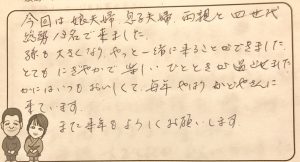 今回は娘夫婦 息子夫婦 両親と四世代
総勢13名で来ました。
孫も大きくなり、やっと一緒に来ることができました。
とてもにぎやかで楽しいひとときが過せました
かにはいつもおいしくて、毎年やはりかどやさんに
来ています。
また来年もよろしくお願いします